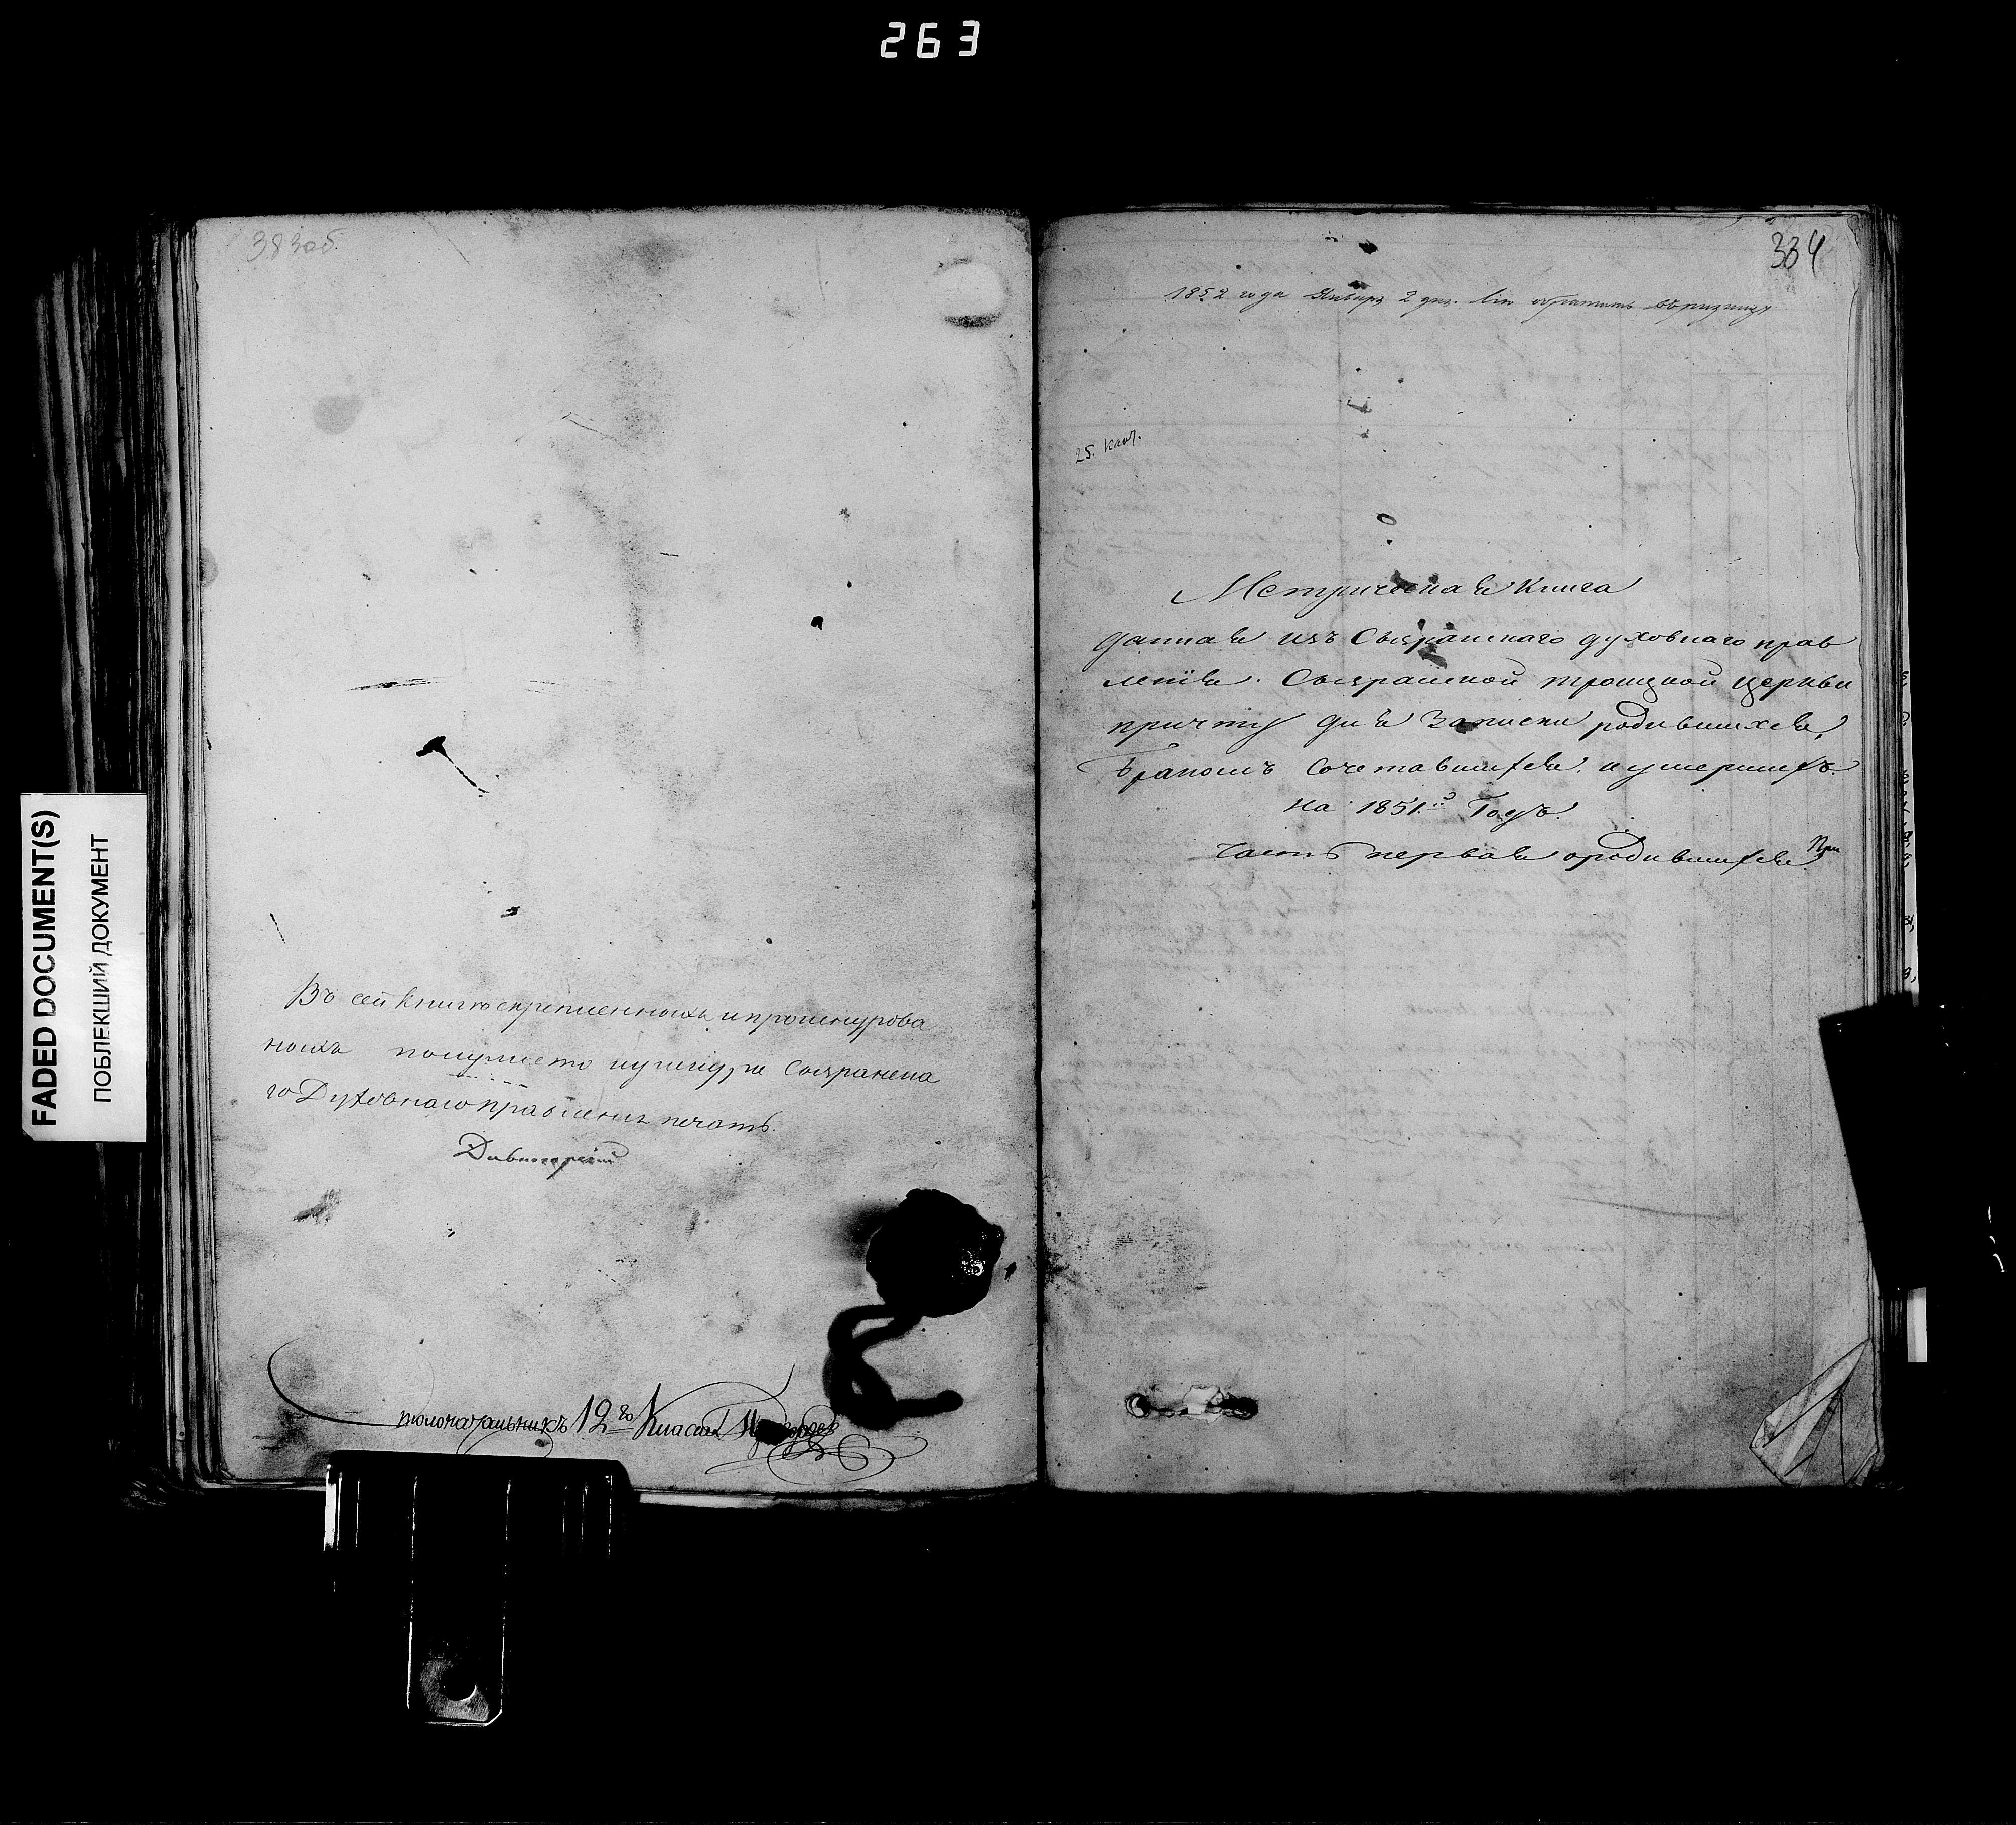 263
FADED DOCUMENT(S)
ПОБЛЕКШИЙ ДОКУМЕНТ
383об.
Въ сей книгѣ скрепленныхъ и прошнурова
ныхъ полулистовъ Сызранска
го Духовнаго правленія печать.
Столоначальникъ 12го Класса
384
1852 года Января 2 дня. въ ризницу
25.
Метрическая Книга
данная изъ Сызранскаго духовнаго прав
ленія. Сызранской троицкой церкви
причту для записки родившихся,
бракомъ сочетавшихся и умершихъ.
на 1851й Годъ.
часть первая о родившихся.